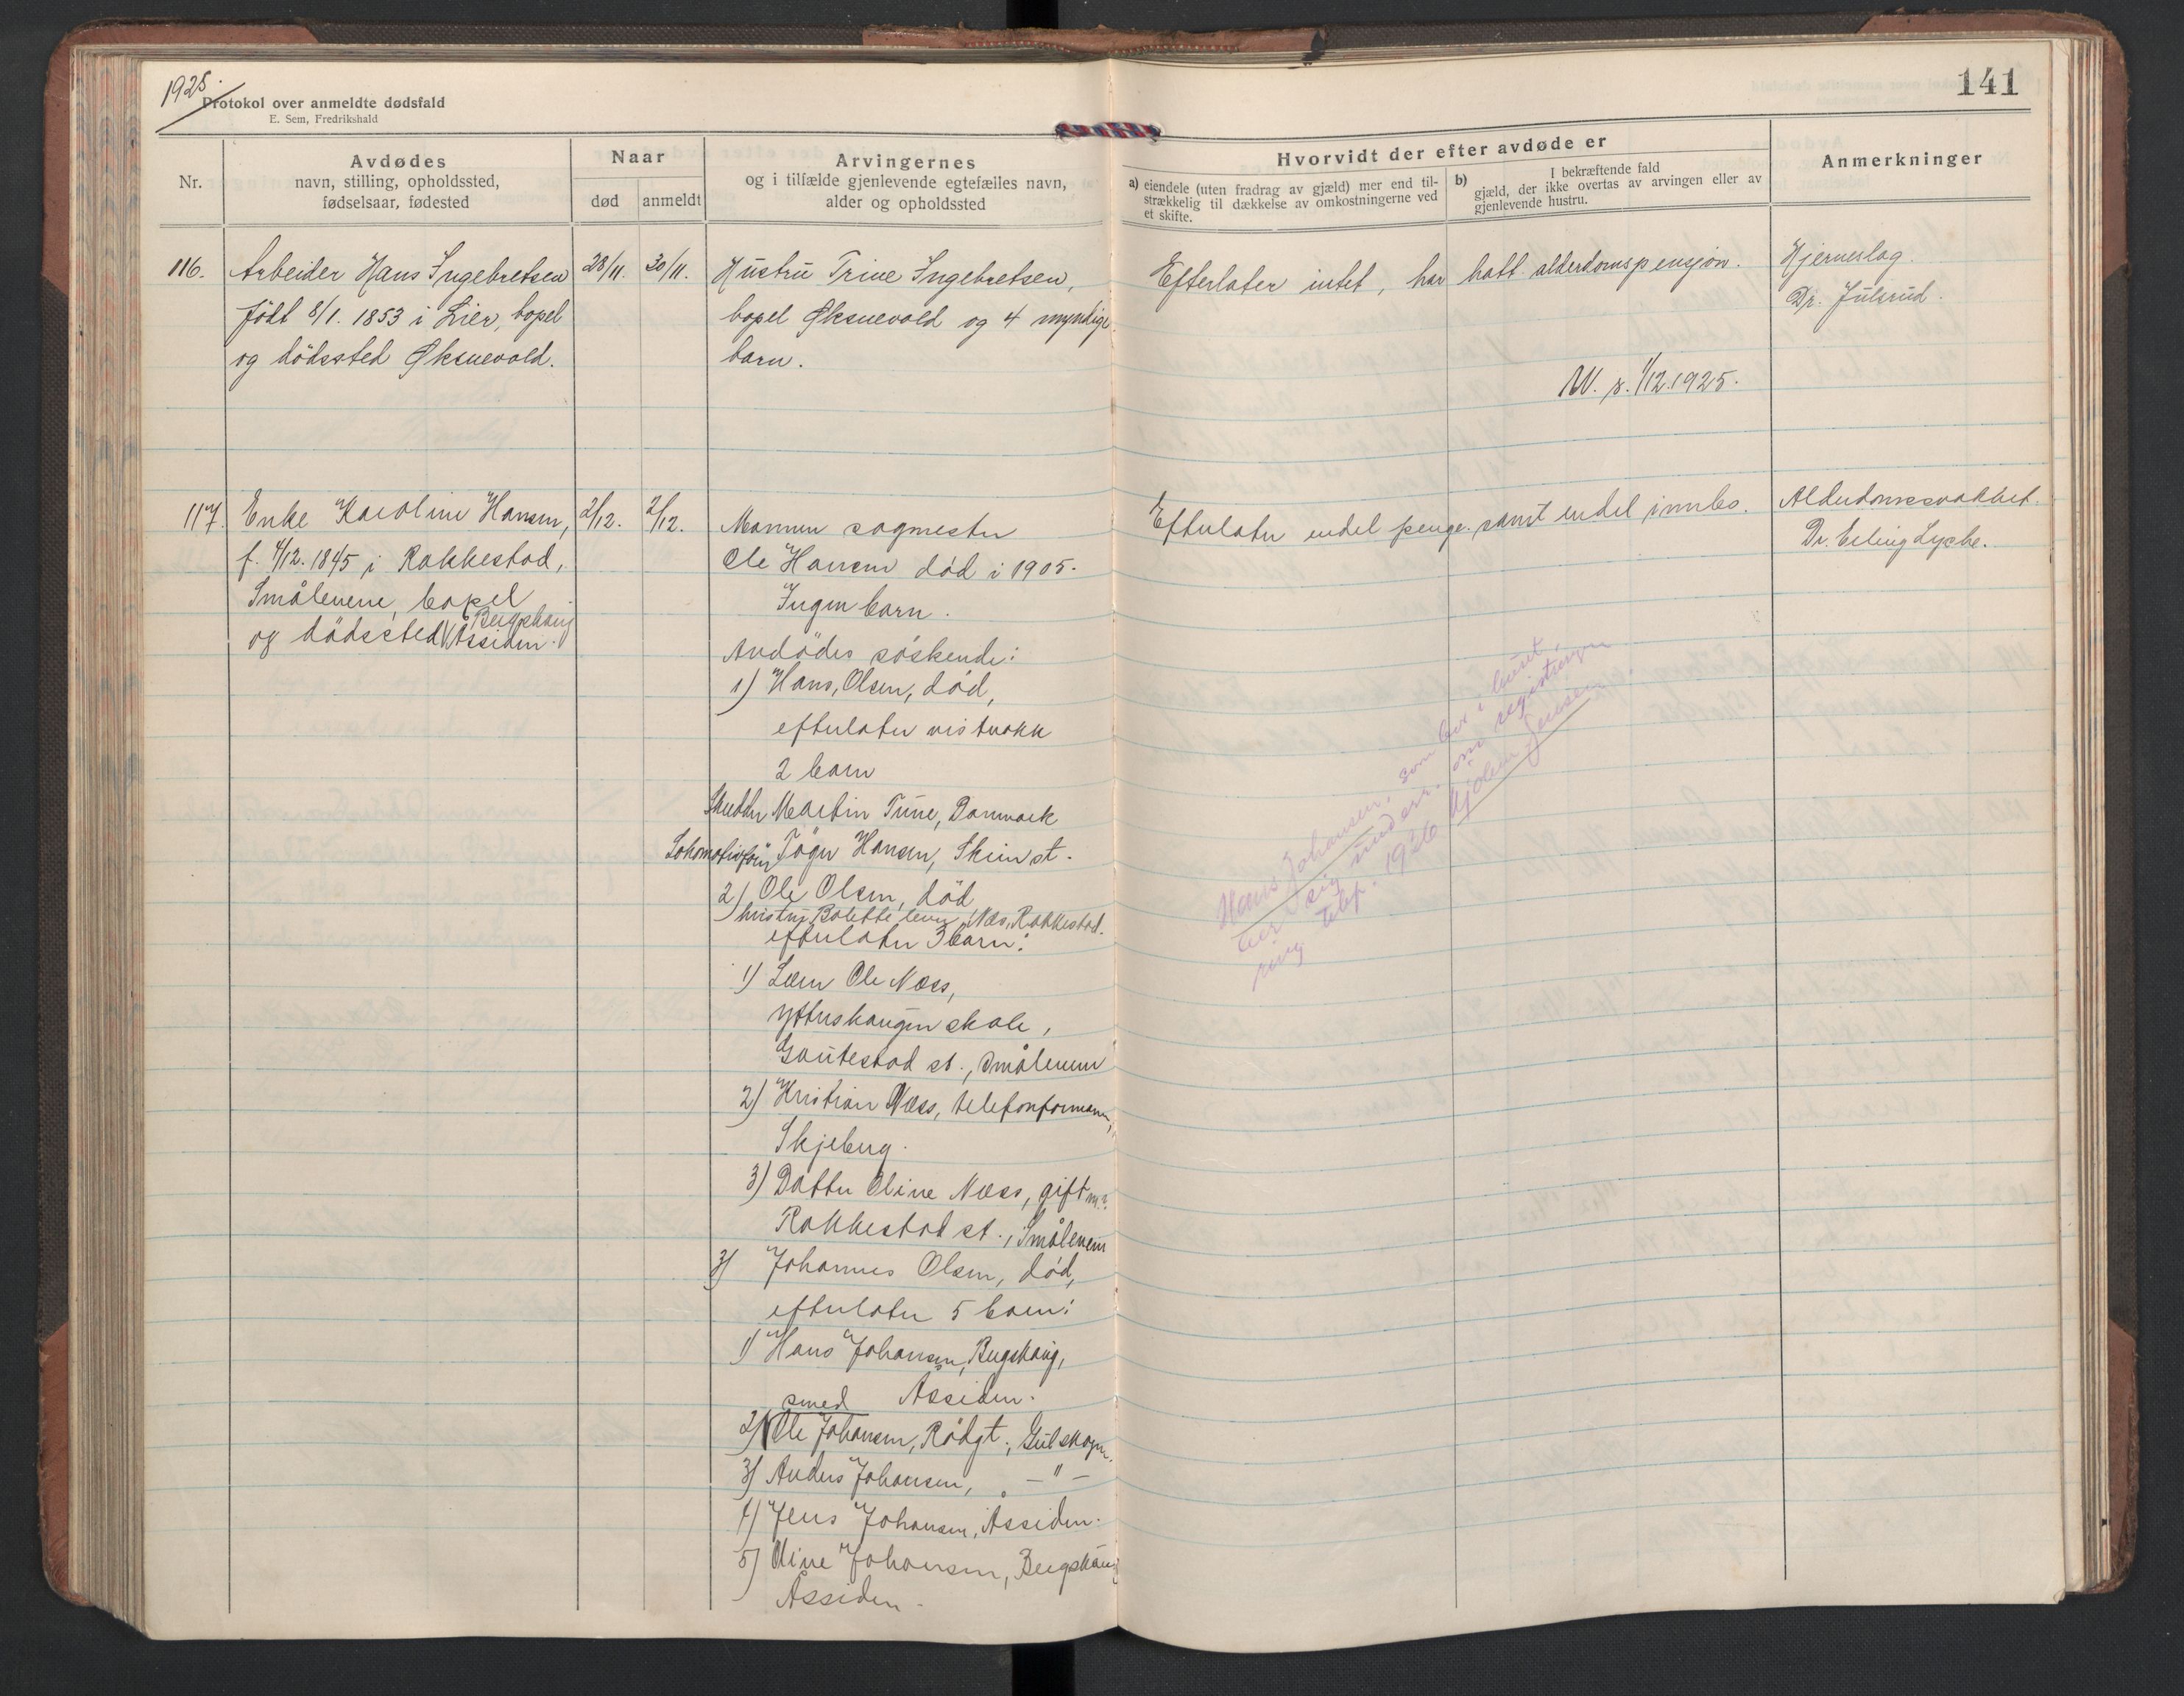 1925.
141
Protokol over anmeldte dødsfald
E. Sem, Fredrikshald
Nr.
Avdødes
navn, stilling, opholdssted,
fødselsaar, fødested
Naar
død
anmeldt
Arvingernes
og i tilfælde gjenlevende egtefælles navn,
alder og opholdssted
Hvorvidt der efter avdøde er
a) eiendele (uten fradrag av gjæld) mer end til-
strækkelig til dækkelse av omkostningerne ved
et skifte.
b) I bekræftende fald
gjæld, der ikke overtas av arvingen eller av
gjenlevende hustru.
Anmerkninger
116.
Arbeider Hans Ingebretsen
født 8/1. 1853 i Lier, bopel
og dödssted Øksnevold.
28/11.
30/11.
Hustru Trine Ingebretsen,
bopel Øksnevold og 4 myndige
barn.
Efterlater intet, har hatt alderdomspensjon.
1/12.1925.
Hjerneslag.
Dr. Julsrud.
117.
Enke Karoline Hansen,
f. 4/12. 1845 i Rakkestad,
Smålenene, bopel
Bergskaug
og dødssted Åssiden.
2/12.
2/12.
Mannen sagmester
Ole Hansen død i 1905.
Ingen barn.
Avdødes søskende:
1) Hans Olsen, død,
efterlater vistnokk
2 barn
Skredder Martin Tune, Danmark
Lokomotivfører Hansen, Skien st.
2) Ole Olsen, død
hustru Bolette lever, Næs, Rakkestad.
efterlater 3 barn:
1) Lærer Ole Næss,
Ytterskaugen skole,
Gautestad st., Smålenene
2) Kristian Næss, telefonformann,
Skjeberg.
3) Datter Oline Næss, gift m.?
Rakkestad st., Smålenene
3) Johannes Olsen, død,
efterlater 5 barn:
1) Hans Johansen, Bergskaug,
smed Åssiden.
2) Ole Johansen, Rødgt., Gulskogen.
3) Anders Johansen, — " —
4) Jens Johansen, Åssiden.
5) Oline Johansen, Bergskaug
Åssiden.
Efterlater endel penge samt endel innbo.
Alderdomssvakhet.
Dr. Erling Lyche.
Hans Johansen, som bor i huset,
ber sig underr. om registreringen
ring telf. 1926 Hjalmar Jensen